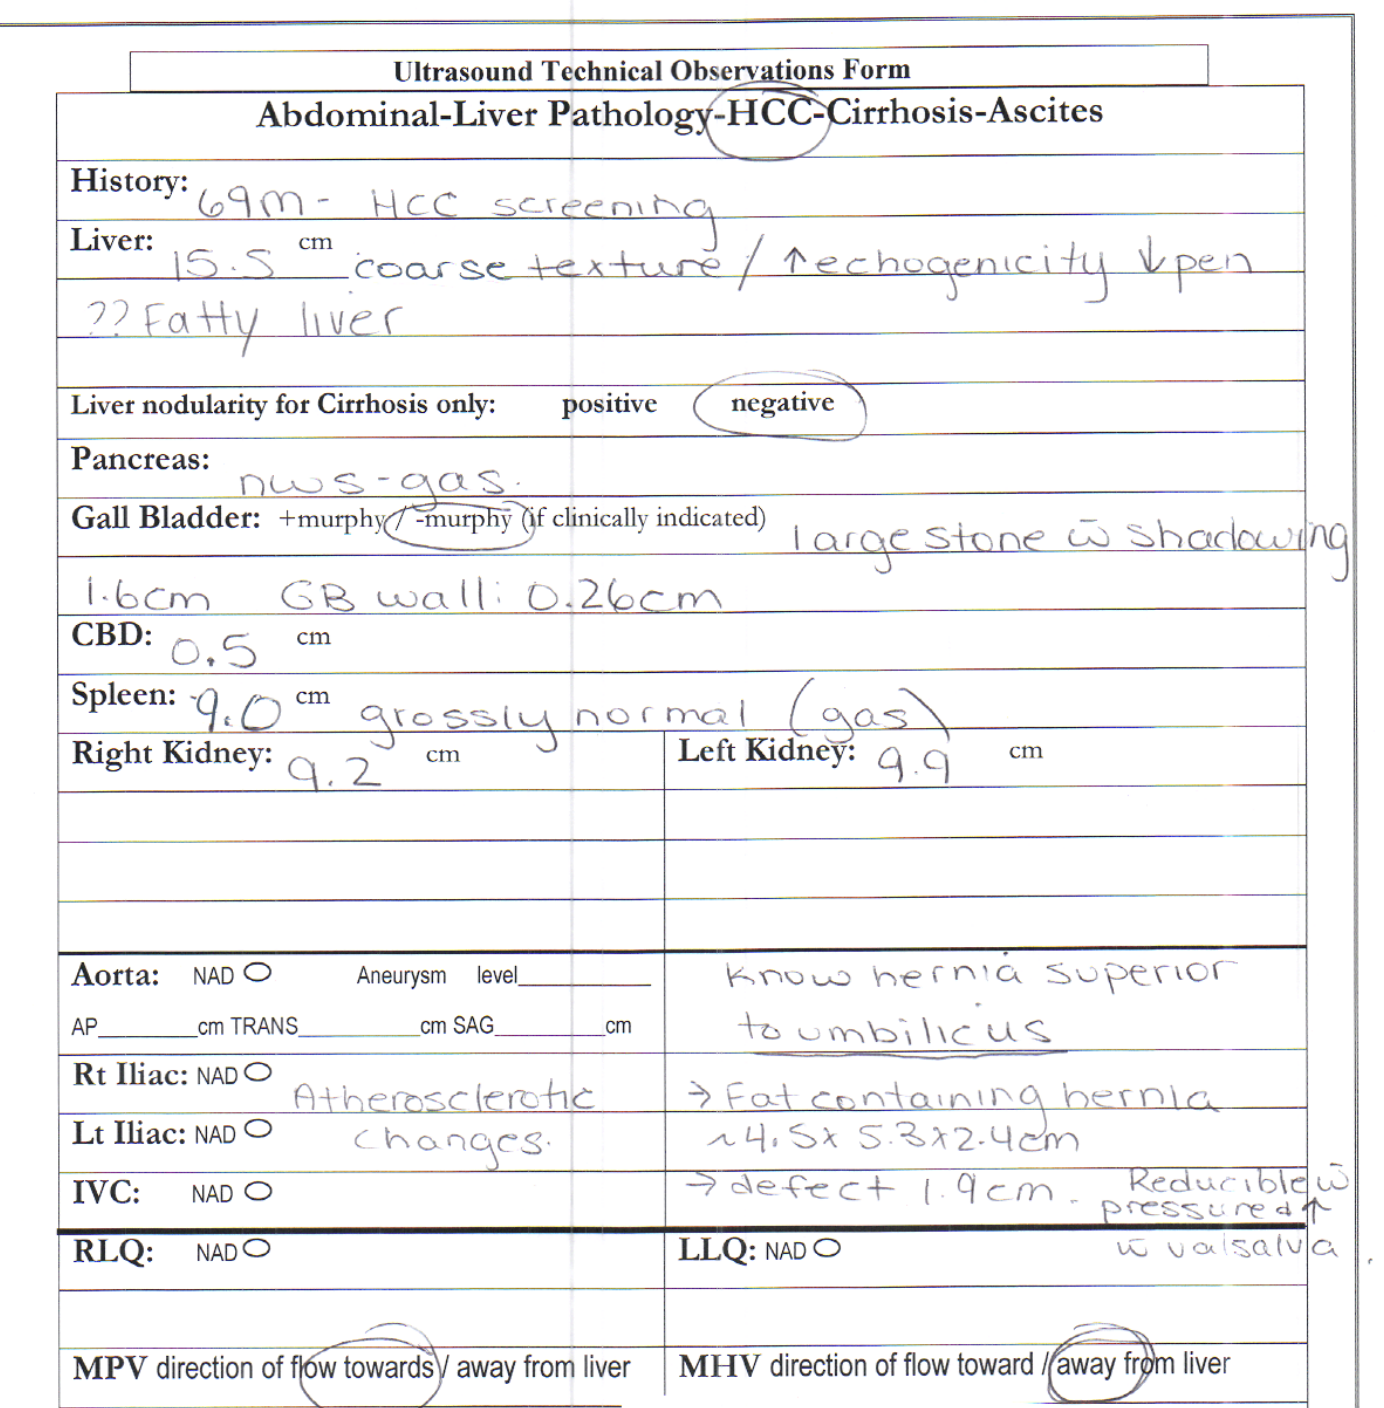 Ultrasound Technical Observations Form
Abdominal-Liver Pathology-HCC-Cirrhosis-Ascites
History: 69m - HCC screening
Liver: 15.5 cm coarse texture / ↑echogenicity ↓pen
?? Fatty liver
Liver nodularity for Cirrhosis only: positive negative
Pancreas: nws - gas.
Gall Bladder: +murphy / -murphy (if clinically indicated) large stone w̄ shadowing
1.6cm GB wall: 0.26cm
CBD: 0.5 cm
Spleen: 9.0 cm grossly normal (gas)
Right Kidney: 9.2 cm
Left Kidney: 9.9 cm
Aorta: NAD Aneurysm level
AP cm TRANS cm SAG cm
Rt Iliac: NAD
Lt Iliac: NAD
Atherosclerotic
changes.
IVC: NAD
Know hernia superior
to umbilicus
→ Fat containing hernia
~4.5x 5.3x2.4cm
→ defect 1.9cm. Reducible w̄
pressure & ↑
w̄ valsalva
RLQ: NAD
LLQ: NAD
MPV direction of flow towards / away from liver
MHV direction of flow toward / away from liver